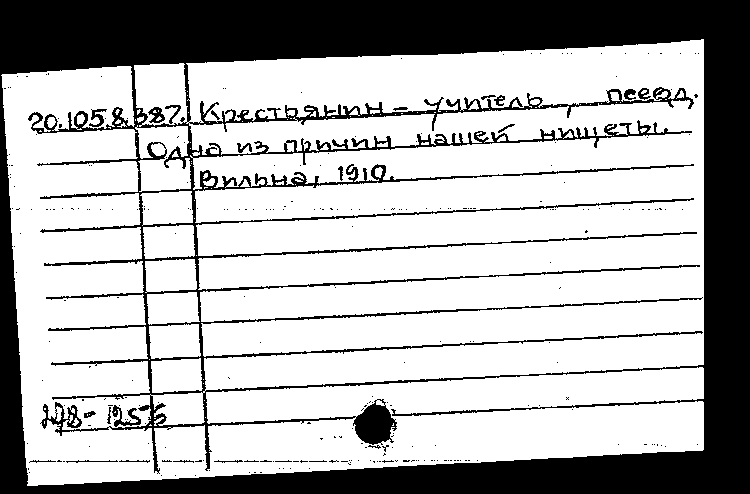 20.105.8.387. Крестьянин - учитель, псевд.
Одна из причин нашей нищеты.
Вильна, 1910.
278 - 1256